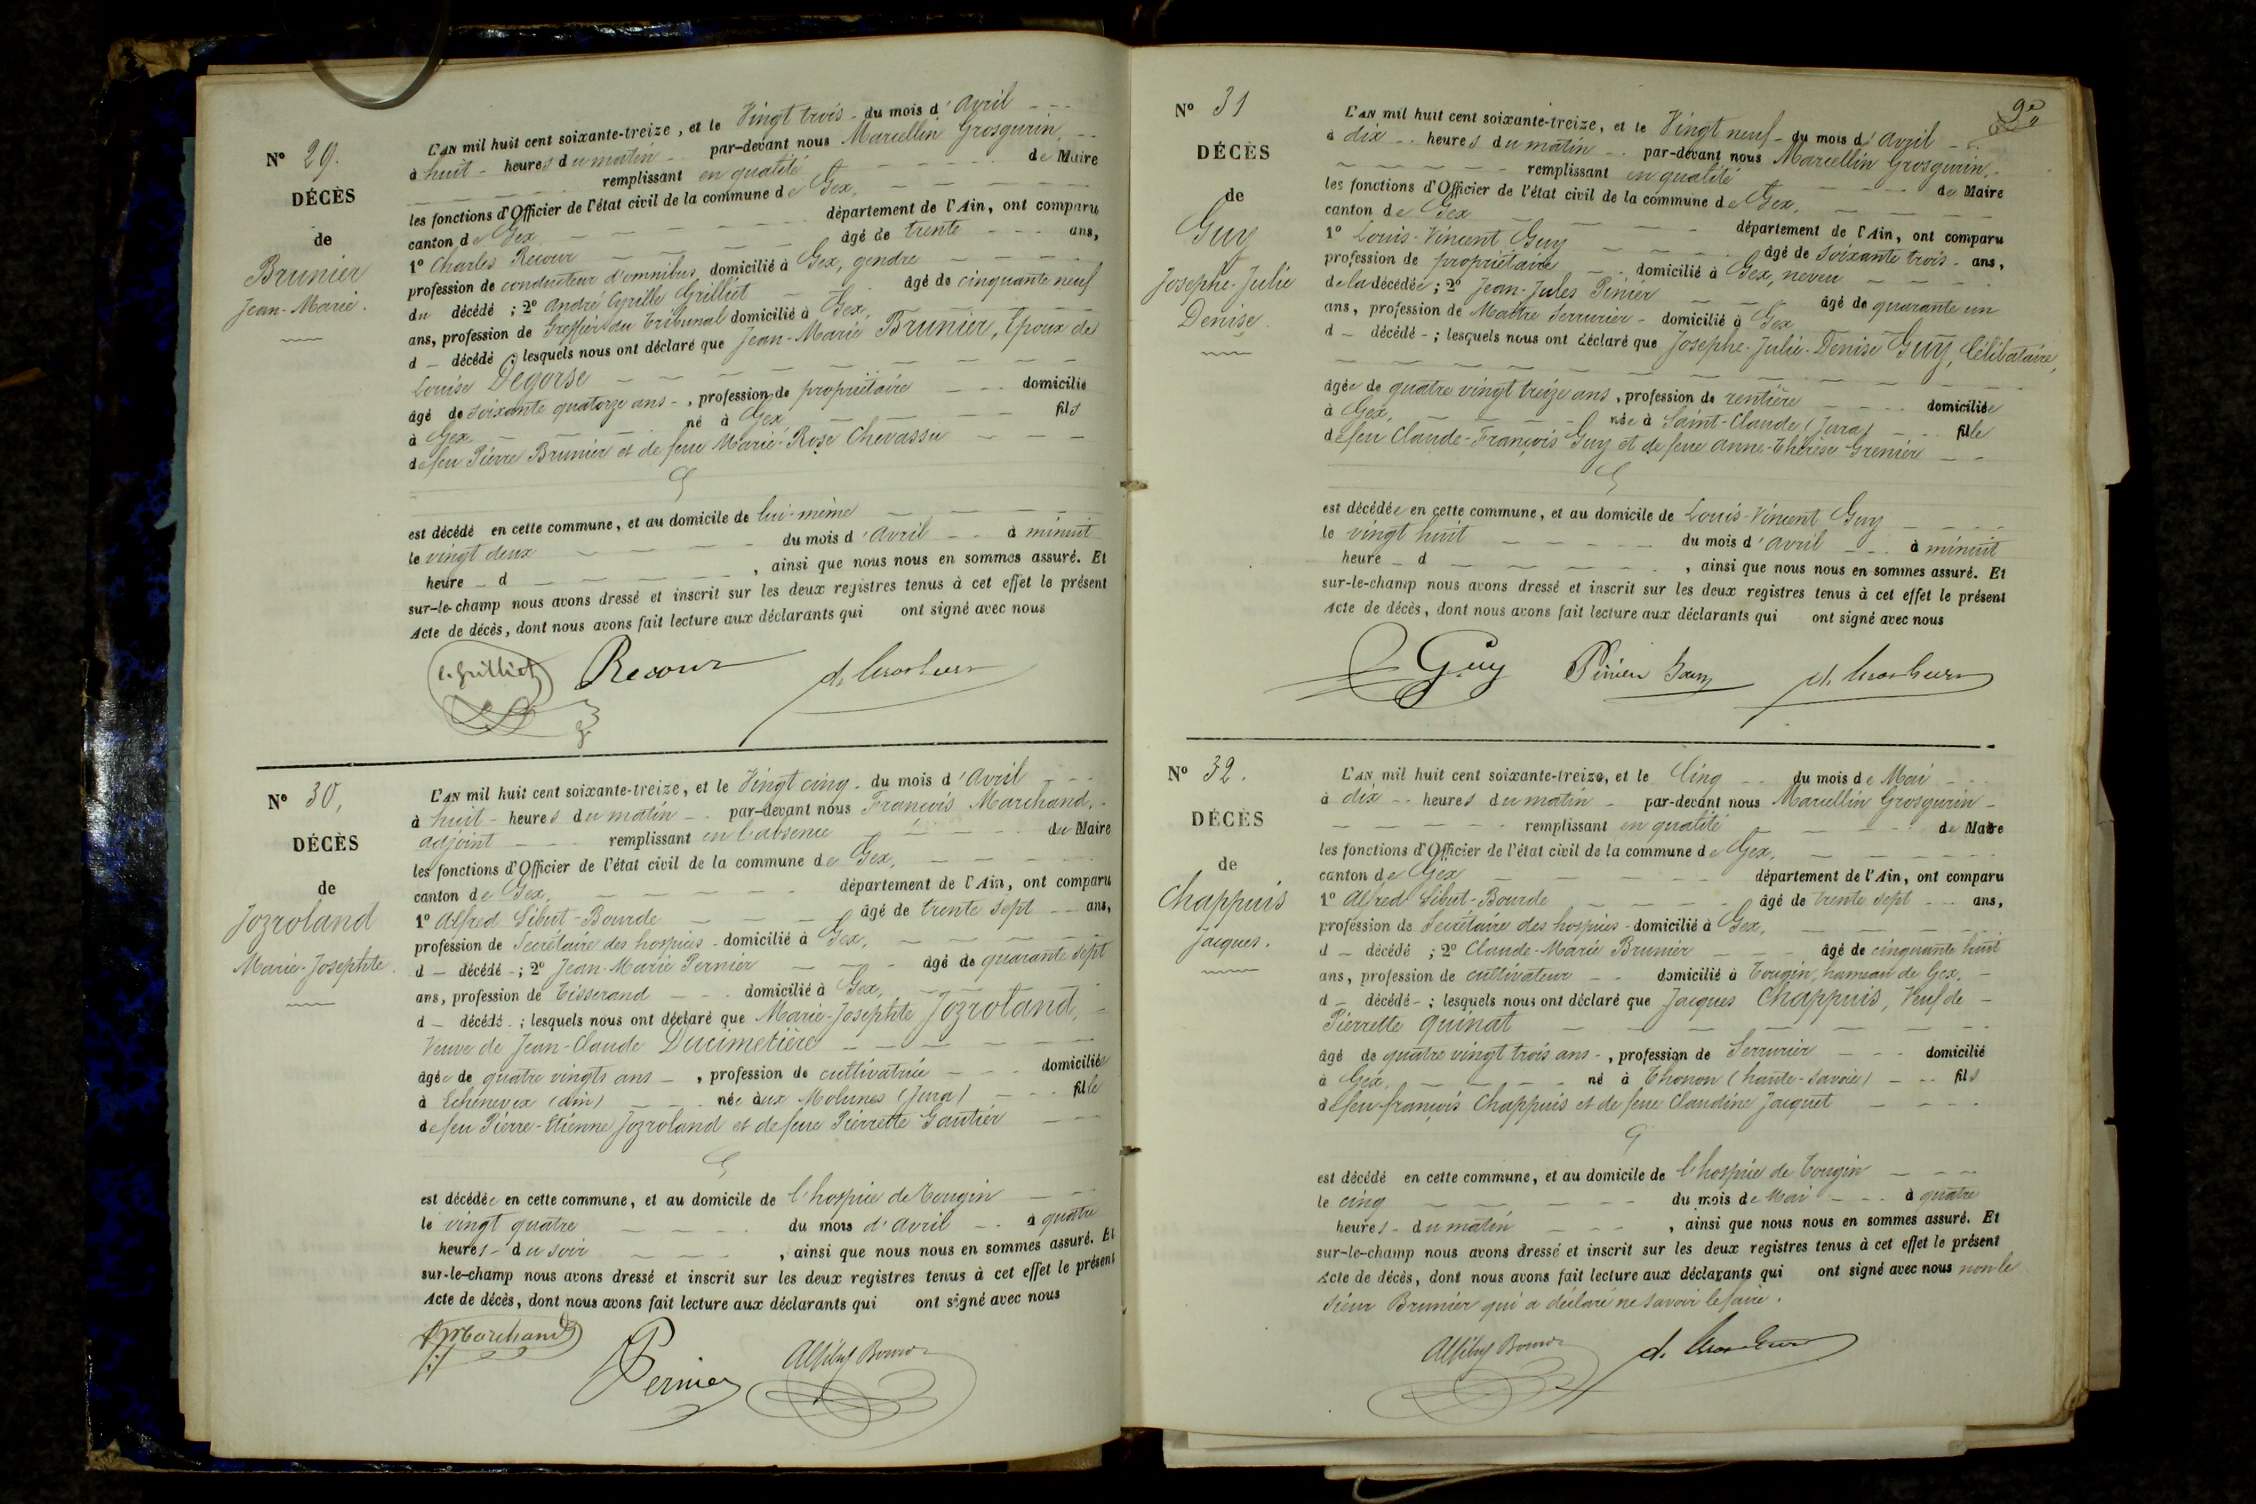 Nº 29.
DÉCÈS
de
Brunier
Jean-Marie.
L'AN mil huit cent soixante-treize, et le Vingt trois du mois d'avril
à huit heures du matin par-devant nous Marcellin Grosgurin
remplissant en qualité de Maire
les fonctions d'Officier de l'état civil de la commune de Gex,
canton de Gex département de l'Ain, ont comparu
1º Charles Recour âgé de trente ans,
profession de conducteur d'omnibus domicilié à Gex, gendre
du décédé ; 2º André Cyrille Grilliet âgé de cinquante neuf
ans, profession de Greffier du Tribunal domicilié à Gex,
d décédé ; lesquels nous ont déclaré que Jean-Marie Brunier, Epoux de
Louise Degorse
âgé de soixante quatorze ans, profession de propriétaire domicilié
à Gex né à Gex fils
de feu Pierre Brunier et de feue Marie-Rose Chevassu
est décédé en cette commune, et au domicile de lui-même
le vingt deux du mois d'avril à minuit
heure d , ainsi que nous nous en sommes assuré. Et
sur-le-champ nous avons dressé et inscrit sur les deux registres tenus à cet effet le présent
Acte de décès, dont nous avons fait lecture aux déclarants qui ont signé avec nous
C. Grilliet Recour
Nº 30,
DÉCÈS
de
Jozroland
Marie-Josephte.
L'AN mil huit cent soixante-treize, et le Vingt cinq du mois d'avril
à huit heures du matin par-devant nous François Marchand,
adjoint remplissant en l'absence du Maire
les fonctions d'Officier de l'état civil de la commune de Gex,
canton de Gex, département de l'Ain, ont comparu
1º Alfred Sibut-Bourde âgé de trente sept ans,
profession de Secrétaire des hospices domicilié à Gex,
d décédé ; 2º Jean-Marie Pernier âgé de quarante sept
ans, profession de Tisserand domicilié à Gex,
d décédé ; lesquels nous ont déclaré que Marie-Josephte Jozroland,
Veuve de Jean-Claude Ducimetière
âgée de quatre vingts ans, profession de cultivatrice domiciliée
à Echenevex (ain) née aux Molunes (Jura) fille
de feu Pierre-Etienne Jozroland et de feue Pierrette Gautier
est décédée en cette commune, et au domicile de l'hospice de Tougin
le vingt quatre du mois d'avril à quatre
heures du soir , ainsi que nous nous en sommes assuré. Et
sur-le-champ nous avons dressé et inscrit sur les deux registres tenus à cet effet le présent
Acte de décès, dont nous avons fait lecture aux déclarants qui ont signé avec nous
Marchand Pernier
Nº 31
DÉCÈS
de
Guy
Josephe-Julie
Denise.
L'AN mil huit cent soixante-treize, et le Vingt neuf du mois d'avril
à dix heures du matin par-devant nous Marcellin Grosgurin,
remplissant en qualité de Maire
les fonctions d'Officier de l'état civil de la commune de Gex,
canton de Gex département de l'Ain, ont comparu
1º Louis-Vincent Guy âgé de soixante trois ans,
profession de propriétaire domicilié à Gex, neveu
de la décédée ; 2º Jean-Jules Pinier âgé de quarante un
ans, profession de Maître Serrurier domicilié à Gex
d décédé ; lesquels nous ont déclaré que Josephe-Julie-Denise Guy, Célibataire,
âgée de quatre vingt treize ans, profession de rentière domiciliée
à Gex, née à Saint-Claude (Jura) fille
de feu Claude-François Guy et de feue Anne-Thérèse Grenier
est décédée en cette commune, et au domicile de Louis-Vincent Guy
le vingt huit du mois d'avril à minuit
heure d , ainsi que nous nous en sommes assuré. Et
sur-le-champ nous avons dressé et inscrit sur les deux registres tenus à cet effet le présent
Acte de décès, dont nous avons fait lecture aux déclarants qui ont signé avec nous
Guy Pinier
Nº 32.
DÉCÈS
de
Chappuis
Jacques.
L'AN mil huit cent soixante-treize, et le Cinq du mois de Mai
à dix heures du matin par-devant nous Marcellin Grosgurin
remplissant en qualité de Maire
les fonctions d'Officier de l'état civil de la commune de Gex,
canton de Gex département de l'Ain, ont comparu
1º Alfred Sibut-Bourde âgé de trente sept ans,
profession de Secrétaire des hospices domicilié à Gex,
d décédé ; 2º Claude-Marie Brunier âgé de cinquante huit
ans, profession de cultivateur domicilié à Tougin, hameau de Gex,
d décédé ; lesquels nous ont déclaré que Jacques Chappuis, Veuf de
Pierrette quinat
âgé de quatre vingt trois ans, profession de Serrurier domicilié
à Gex, né à Thonon (haute-savoie) fils
de feu françois Chappuis et de feue Claudine Jacquet
est décédé en cette commune, et au domicile de l'hospice de Tougin
le cinq du mois de Mai à quatre
heures du matin , ainsi que nous nous en sommes assuré. Et
sur-le-champ nous avons dressé et inscrit sur les deux registres tenus à cet effet le présent
Acte de décès, dont nous avons fait lecture aux déclarants qui ont signé avec nous non le
sieur Brunier qui a déclaré ne savoir le faire.